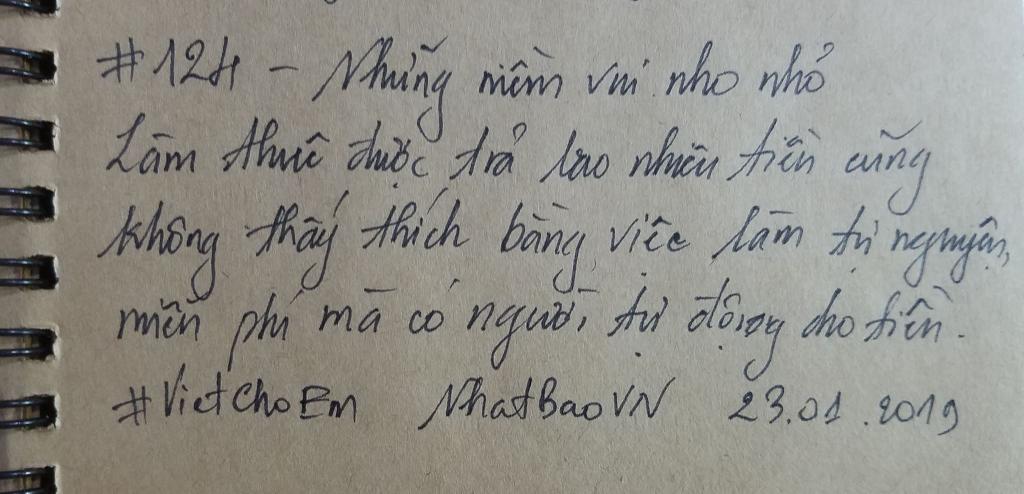 #124 - Những niềm vui nho nhỏ
Làm thuê được trả lao nhiêu tiền cũng
không thấy thích bằng việc làm tự nguyện,
miễn phí mà có người tự động cho tiền.
#VietChoEm NhatBaoVN 23.01.2019